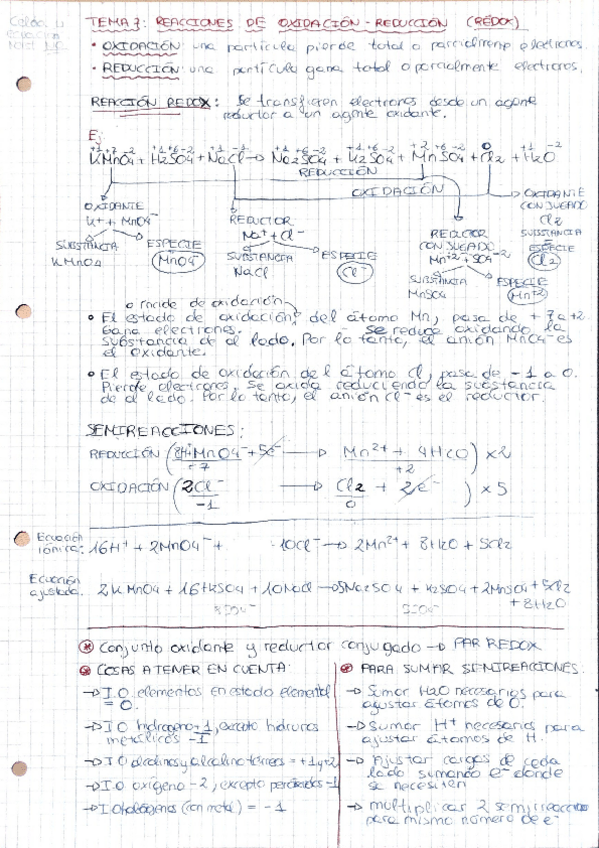 TEMA 7: REACCIONES DE OXIDACIÓN-REDUCCIÓN (REDOX)
• OXIDACIÓN: una partícula pierde total o parcialmente electrones.
• REDUCCIÓN: una partícula gana total o parcialmente electrones.
REACCIÓN REDOX: Se transfieren electrones desde un agente
reductor a un agente oxidante.
Ej
+1 +7 -2 +1 +6 -2 +1 -1 +1 +6 -2 +1 +6 -2 +2 +6 -2 0 +1 -2
KMnO4 + H2SO4 + NaCl → Na2SO4 + K2SO4 + MnSO4 + Cl2 + H2O
REDUCCIÓN
OXIDACIÓN
OXIDANTE
K+ + MnO4-
SUBSTANCIA
KMnO4
ESPECIE
MnO4-
REDUCTOR
Na+ + Cl-
SUBSTANCIA
NaCl
ESPECIE
Cl-
REDUCTOR
CONJUGADO
Mn+2 + SO4-2
SUBSTANCIA
MnSO4
ESPECIE
Mn+2
OXIDANTE
CONJUGADO
Cl2
SUBSTANCIA
ESPECIE
Cl2
o número de oxidación
• El estado de oxidación del átomo Mn, pasa de +7 a +2
Gana electrones. Se reduce oxidando la
substancia de al lado. Por lo tanto, el anión MnO4- es
el oxidante.
• El estado de oxidación del átomo Cl, pasa de -1 a 0.
Pierde electrones. Se oxida reduciendo la substancia
de al lado. Por lo tanto, el anión Cl- es el reductor.
SEMIREACCIONES:
REDUCCIÓN (8H+ + MnO4- + 5e- → Mn2+ + 4H2O) x2
+7 +2
OXIDACIÓN (2Cl- → Cl2 + 2e-) x5
-1 0
Ecuación
iónica: 16H+ + 2MnO4- + 10Cl- → 2Mn2+ + 8H2O + 5Cl2
Ecuación
ajustada: 2KMnO4 + 16H2SO4 + 10NaCl → 5Na2SO4 + K2SO4 + 2MnSO4 + 5Cl2
+ 8H2O
* Conjunto oxidante y reductor conjugado → PAR REDOX
* COSAS A TENER EN CUENTA:
→ I.O. elementos en estado elemental
= 0.
→ I.O hidrógeno +1, excepto hidruros
metálicos -1
→ I.O alcalinos y alcalino térreos = +1 y +2
→ I.O oxígeno -2, excepto peróxidos -1
→ I.O halógenos (con metal) = -1
* PARA SUMAR SEMIREACCIONES.
→ Sumar H2O necesarios para
ajustar átomos de O.
→ Sumar H+ necesarios para
ajustar átomos de H.
→ Ajustar cargas de cada
lado sumando e- donde
se necesiten
→ multiplicar 2 semireacciones
para mismo número de e-